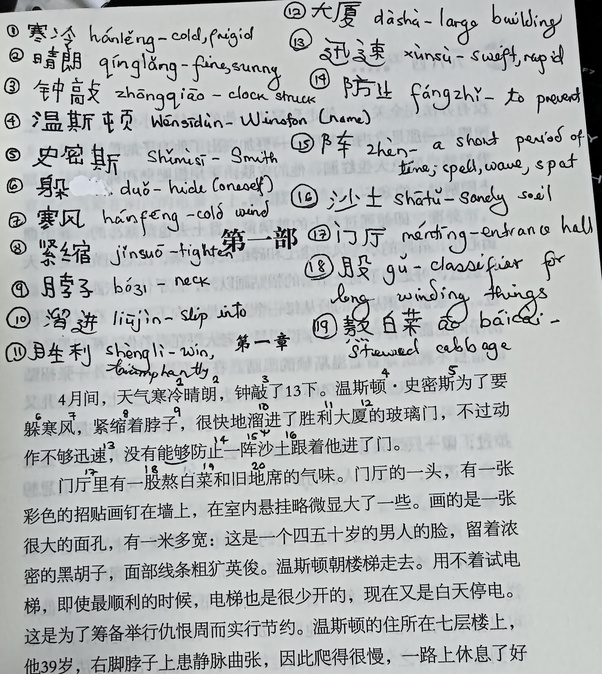 ① 寒冷 hánlěng-cold, frigid
② 晴朗 qínglǎng-fine, sunny
③ 钟敲 zhōngqiāo-clock struck
④ 温斯顿 Wēnsīdùn-Winston (name)
⑤ 史密斯 Shǐmìsī-Smith
⑥ 躲 duǒ-hide (oneself)
⑦ 寒风 hánfēng-cold wind
⑧ 紧缩 jǐnsuō-tighten
⑨ 脖子 bózi-neck
⑩ 溜进 liūjìn-slip into
⑪ 胜利 shènglì-win, triumphantly
⑫ 大厦 dàshà-large building
⑬ 迅速 xùnsù-swift, rapid
⑭ 防止 fángzhǐ-to prevent
⑮ 阵 zhèn-a short period of
time, spell, wave, spat
⑯ 沙土 shātǔ-sandy soil
⑰ 门厅 ménting-entrance hall
⑱ 股 gǔ-classifier for
long winding things
⑲ 熬白菜 āo báicài-
stewed cabbage
第一部
第一章
4月间，天气寒冷晴朗，钟敲了13下。温斯顿·史密斯为了要
躲寒风，紧缩着脖子，很快地溜进了胜利大厦的玻璃门，不过动
作不够迅速，没有能够防止一阵沙土跟着他进了门。
门厅里有一股熬白菜和旧地席的气味。门厅的一头，有一张
彩色的招贴画钉在墙上，在室内悬挂略微显大了一些。画的是一张
很大的面孔，有一米多宽：这是一个四五十岁的男人的脸，留着浓
密的黑胡子，面部线条粗犷英俊。温斯顿朝楼梯走去。用不着试电
梯，即使最顺利的时候，电梯也是很少开的，现在又是白天停电。
这是为了筹备举行仇恨周而实行节约。温斯顿的住所在七层楼上，
他39岁，右脚脖子上患静脉曲张，因此爬得很慢，一路上休息了好